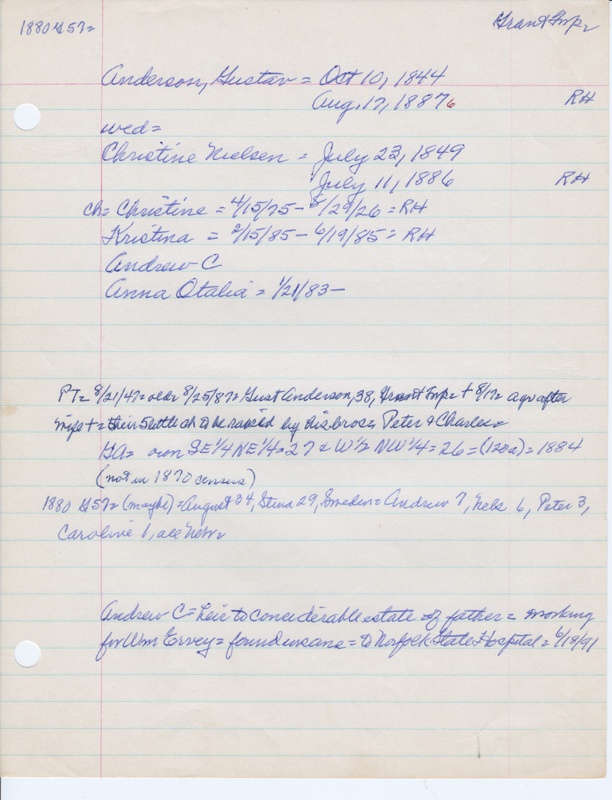 1880 #57= Grant Twp=
Anderson, Gustav = Oct 10, 1844
Aug. 17, 18876 RH
wed=
Christine Nielsen = July 23, 1849
July 11, 1886 RH
ch= Christine = 4/15/75 - 8/29/26 = RH
Kristina = 2/15/85 - 6/19/85 = RH
Andrew C
Anna Otalia = 1/21/83 -
PT= 8/21/47= 8/25/87= Gust Anderson, 38, Grant Twp= + 8/17= a yr after
wife + = their 5 little ch to be raised by his bros= Peter & Charles=
GA= own SE 1/4 NE 1/4 = 27 & W 1/2 NW 1/4 = 26 = (120a) = 1884
(not in 1870 census)
1880 #57= (maybe) = August 34, Stina 29, Sweden= Andrew 7, Nels 6, Peter 3,
Caroline 1, all Neb=
Andrew C = heir to considerable estate of father = working
for Wm Ervey = found insane = to Norfolk State Hospital = 6/18/91